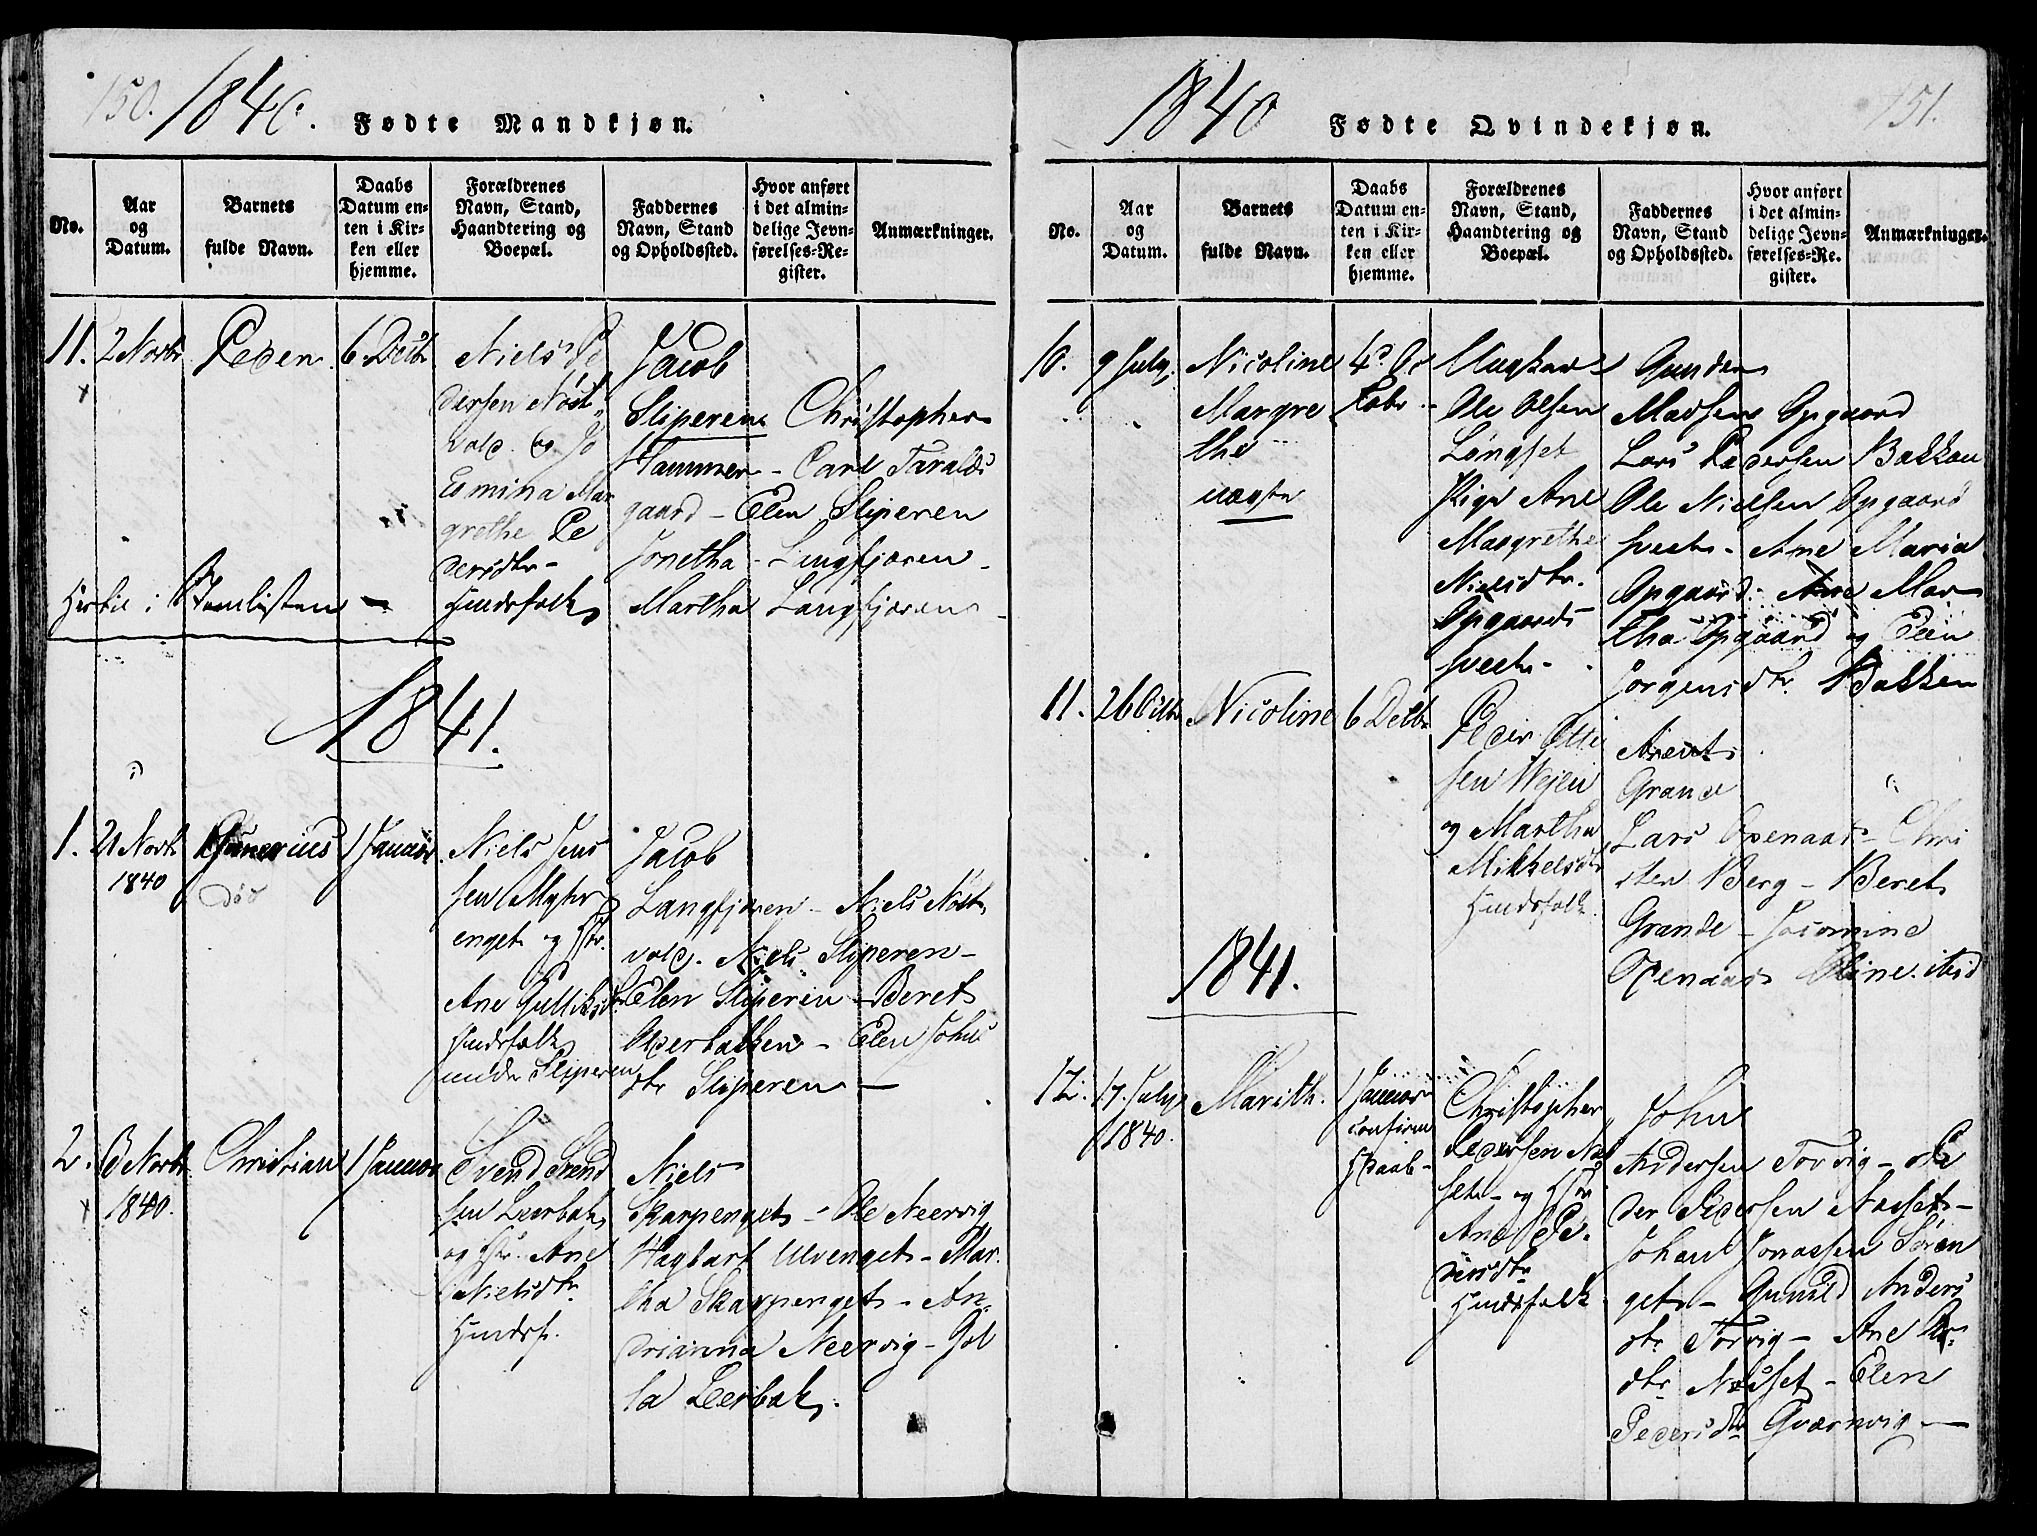 150.
1840.
Fødte Mandkjøn.
No.
Aar
og
Datum.
Barnets
fulde Navn.
Daabs
Datum en-
ten i Kir-
ken eller
hjemme.
Forældrenes
Navn, Stand,
Haandtering og
Boepæl.
Faddernes
Navn, Stand
og Opholdssted.
Hvor anført
i det almin-
delige Jevn-
førelses-Re-
gister.
Anmærkninger.
11. 2 Novbr Peder. 6 Decbr
Niels Pe
dersen Nöst
vold og
Esmina Mar
grethe Pe
dersdtr
Huusfolk
Jacob
Sliperen Christopher
Hammer - Carl Tarald
gaard - Elen Sliperen
Jonetha - Langfjæren
Martha Langfjæren
1841.
1. 21 Novbr
1840
Gunerius
död
1 Januar
Niels Jens
sen Myhr
enget og Hstr.
Ane Gulliksdtr
Huusfolk
under Sliperen
Jacob
Langfjæren - Niels Nöst
vold. Niels Sliperen -
Elen Sliperen - Beret
Overbakken - Elen Johns
dtr Sliperen -
2. 13 Novbr
1840.
Christian 1 Januar
Svend Svend
sen Leerbak
og Hstr. Ane
Nielsdtr
Huusf.
Niels
Skarpenget - Ole Neervig
Hagbart Ulvenget - Mar
tha Skarpenget - An
drianna Neervig -
Leerbak.
1840
Fødte Qvindekjøn.
151.
No.
Aar
og
Datum.
Barnets
fulde Navn.
Daabs
Datum en-
ten i Kir-
ken eller
hjemme.
Forældrenes
Navn, Stand,
Haandtering og
Boepæl.
Faddernes
Navn, Stand
og Opholdssted.
Hvor anført
i det almin-
delige Jevn-
førelses-Re-
gister.
Anmærkninger.
10. 9 July
Nicoline
Margre
the
uægte
4de Oc
tobr
Ungkar
Ole Olsen
Löngset
Pige Ane
Margrethe
Nielsdtr.
Opgaards
Gunder
Madsen Opgaard
Lars Pedersen Bakken
Ole Nielsen Opgaard
Ane Maria
Opgaard. Ane Mar
tha Opgaard og Elen
Jörgensdtr. Bakken
11. 26 Octbr Nicoline 6 Decbr
Peder
sen
og Martha
Mikkelsdtr
Huusfolk.
Arent
Grande
Lars Oxenaas - Chri
sten Berg - Beret
Grande -
Oxenaas Oline ibid
1841.
12. 17. July
1840.
Marith.
1 Januar
confirm
H.daab -
Christopher
Pedersen Næs
set - og Hstr
Ane Pe
dersdtr
Huusfolk
John
Andersen Torvig - Pe
der Pedersen Næsset -
Johan Jonassen Sören
get - Gunild Anders
dtr Torvig - Ane
dtr Næsset - Elen
Pedersdtr Qværnvig -